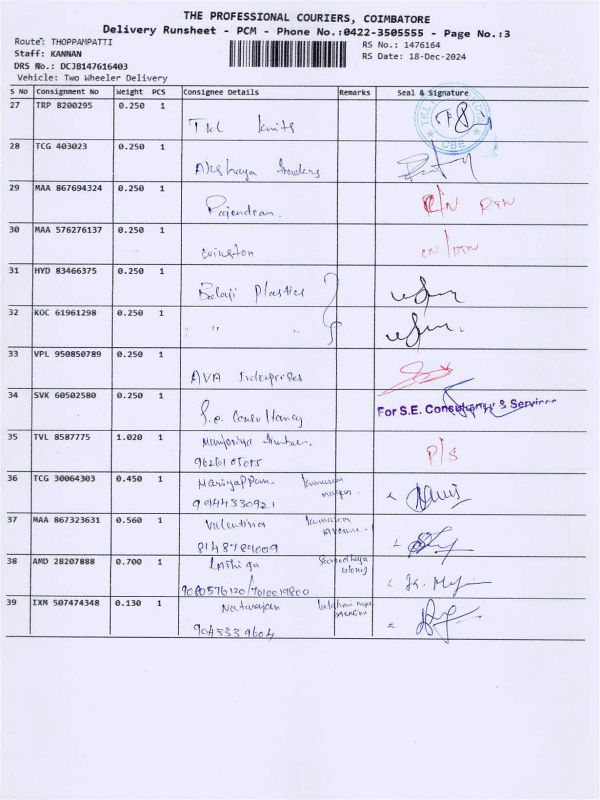 THE PROFESSIONAL COURIERS, COIMBATORE
Delivery Runsheet - PCM - Phone No.:0422-3505555 - Page No.:3
Route: THOPPAMPATTI
RS No.: 1476164
Staff: KANNAN
RS Date: 18-Dec-2024
DRS No.: DCJB147616403
Vehicle: Two Wheeler Delivery
S No Consignment No Weight PCS Consignee Details Remarks Seal & Signature
27 TRP 8200295 0.250 1
TKL Knits
CBE
28 TCG 403023 0.250 1
Akshaya traders
29 MAA 867694324 0.250 1
Rajendran.
30 MAA 576276137 0.250 1
winston
31 HYD 83466375 0.250 1
Balaji Plastics
32 KOC 61961298 0.250 1
" "
33 VPL 950850789 0.250 1
AVA Enterprises
34 SVK 60502580 0.250 1
S.e. Consultancy
For S.E. Consultancy & Services
35 TVL 8587775 1.020 1
P/S
36 TCG 30064303 0.450 1
Mariyappan.
9944330921
37 MAA 867323631 0.560 1
Valentina
8148789009
38 AMD 28207888 0.700 1
9080576120/7010019800
39 IXM 507474348 0.130 1
Natarajan
9045339604